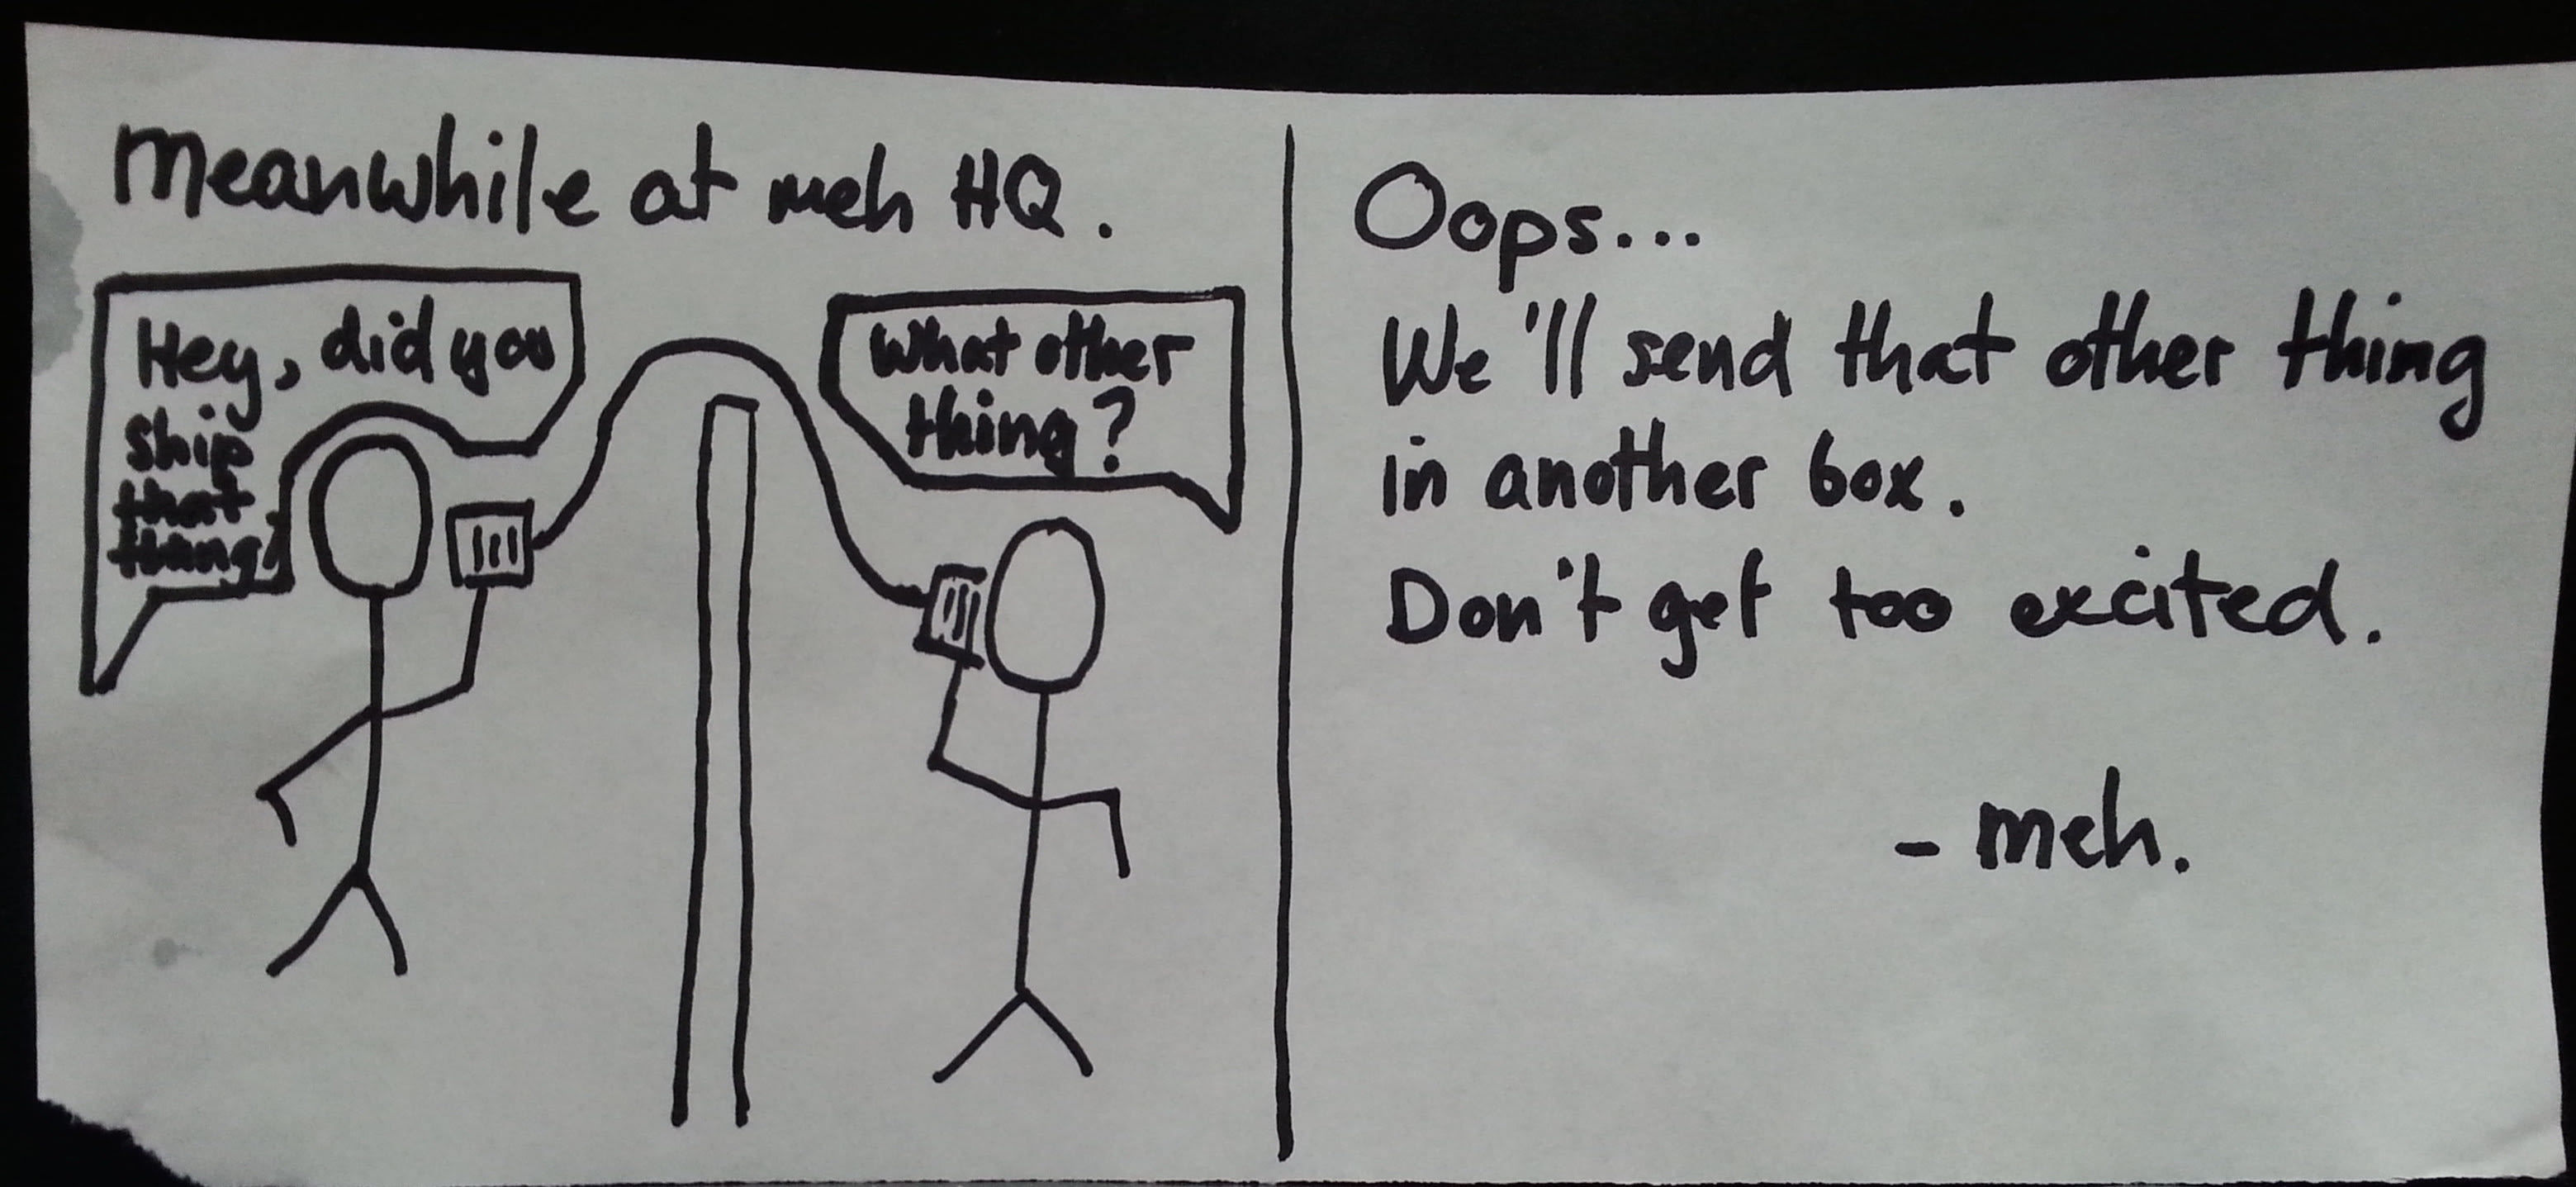 Meanwhile at meh HQ.
Hey, did you
ship
that
thing?
What other
thing?
Oops...
We'll send that other thing
in another box.
Don't get too excited.
- meh.